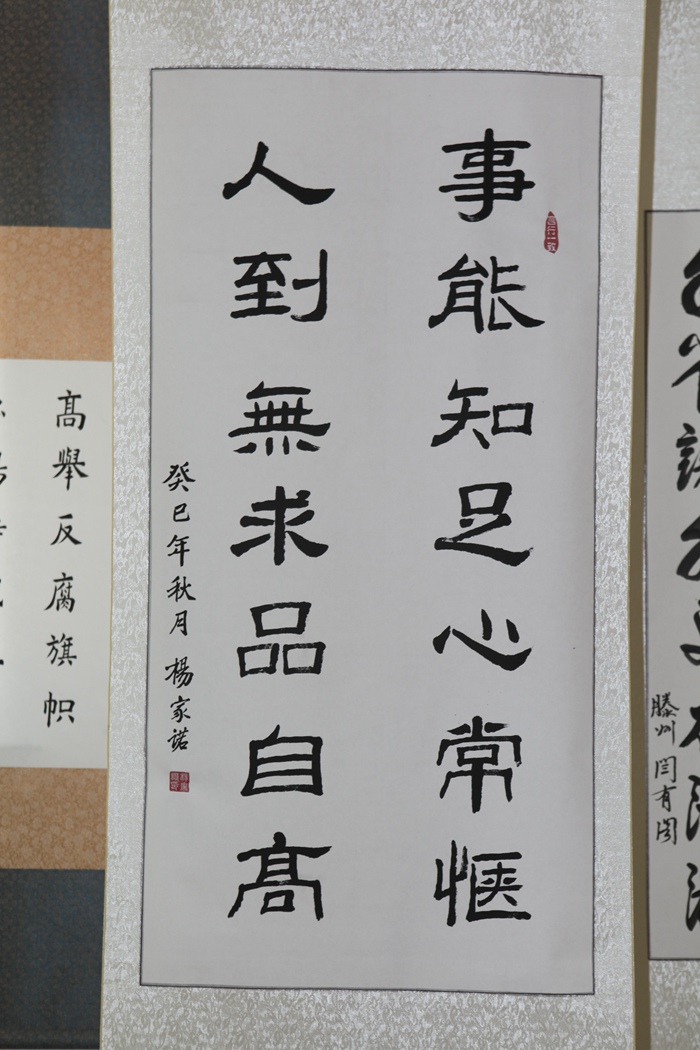 事能知足心常惬
人到無求品自高
癸巳年秋月 楊家諾
高舉反腐旗帜
滕州 闫有阁